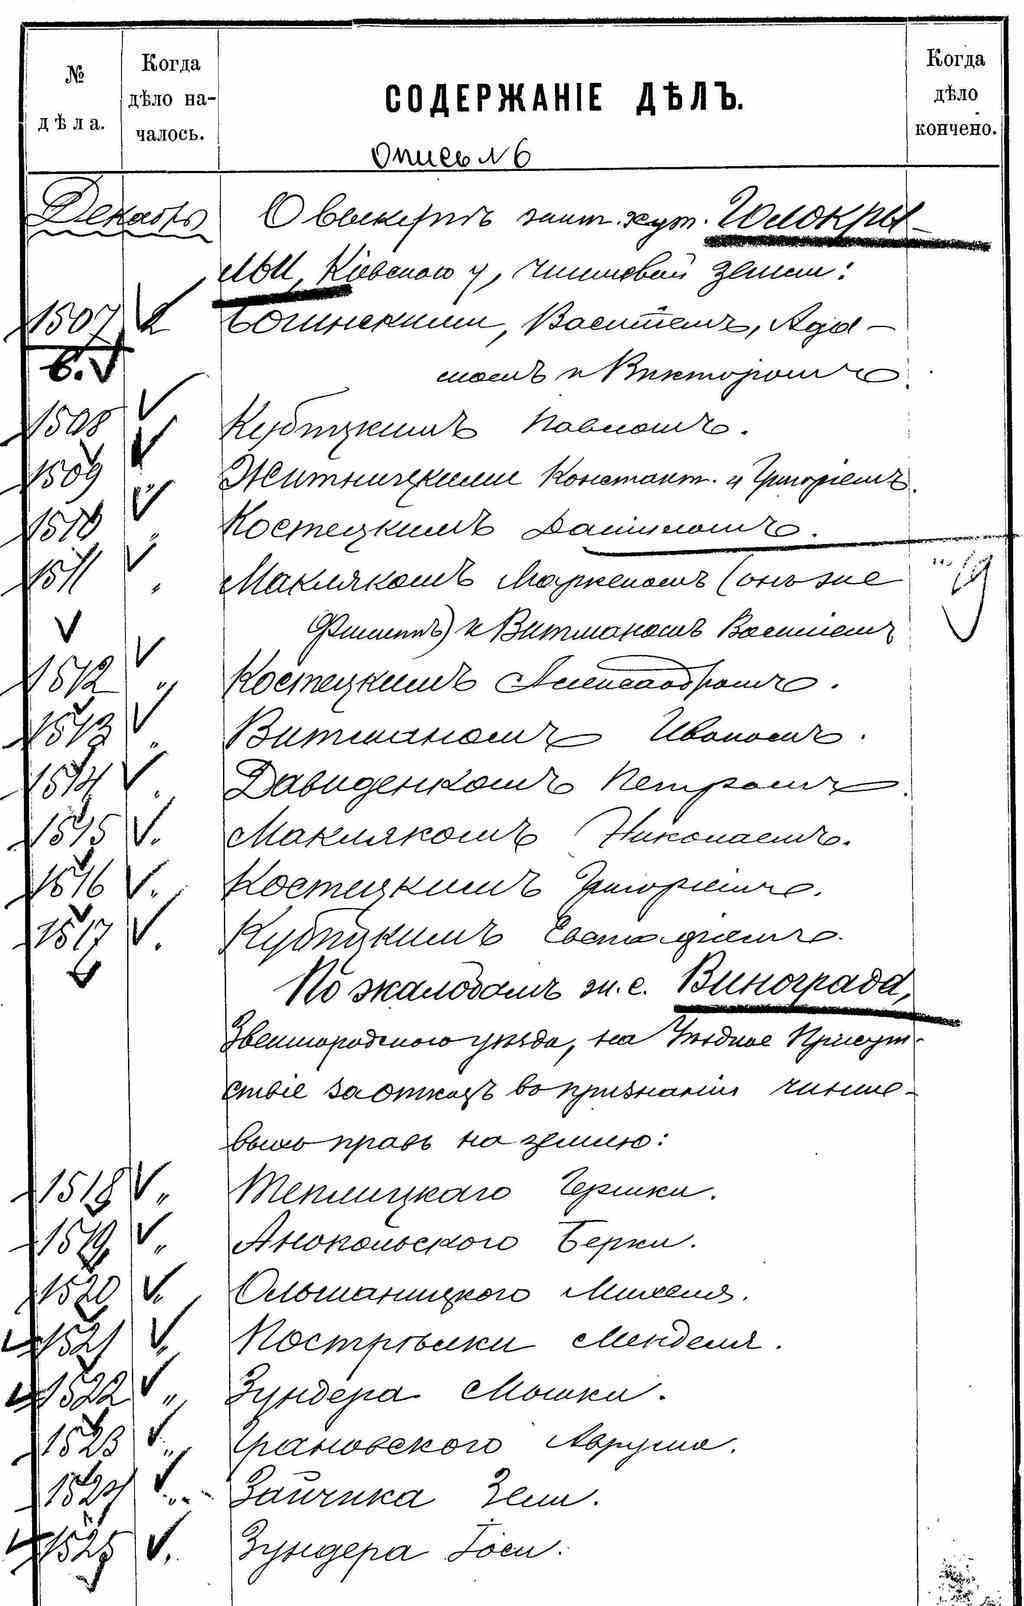 № дѣла.
Когда дѣло на-чалось.
СОДЕРЖАНІЕ ДѢЛЪ.
Когда дѣло кончено.
Опись № 6
Декабрь О выкупѣ жит. хут. Голокры-
мы, Кіевскаго у, чиншевой земли:
1507 2 Огинскими, Василіемъ, Ада-
6. момъ и Викторомъ
1508 Кубицкимъ Павломъ.
1509 " Житницкими Констант. и Григоріемъ.
1510 " Костецкимъ Даніиломъ.
1511 " Макляком Маркеломъ (онъ же
) и Витманомъ Василіемъ
1512 " Костецкимъ Александромъ.
1513 " Витманомъ Иваномъ.
1514 " Давиденкомъ Петромъ.
1515 " Маклякомъ Николаемъ.
1516 " Костецкимъ Григоріемъ.
1517 " Кубицкимъ Евстафіемъ.
По жалобамъ ж. с. Винограда,
Звенигородскаго уѣзда, на Уѣздное Присут-
ствіе за отказъ въ признаніи чинше-
выхъ правъ на землю:
1518 " Теплицкаго Гершки.
1519 " Анокольскаго Берки.
1520 " Ольшаницкаго Михеля.
1521 " Пострѣлки Менделя.
1522 " Зундера Мошки.
1523 " Грановскаго Аврума.
1524 " Зайчика Зели.
1525 " Зундера Іоси.